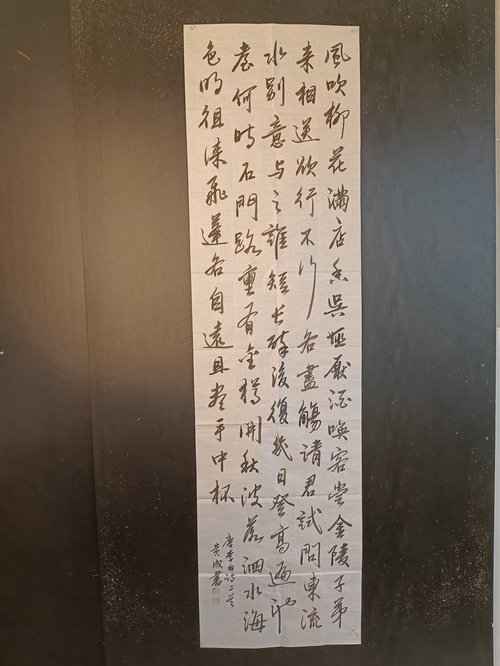 風吹柳花滿店香吳姬厭酒喚客嘗金陵子弟
来相送欲行不行各盡觴請君試問東流
水別意与之誰短長醉後復幾日登高遍池
臺何時石門路重有金樽開秋波落泗水海
色明徂徠飛蓬各自遠且盡手中杯
唐李白詩二首
成書